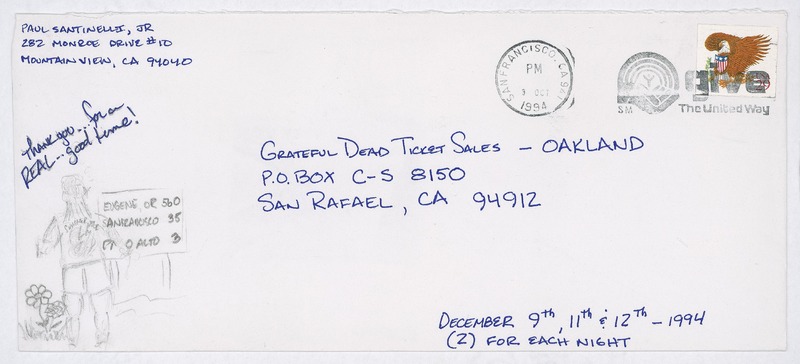 PAUL SANTINELLI, JR
282 MONROE DRIVE #10
MOUNTAIN VIEW, CA 94040
SAN FRANCISCO, CA 941
PM
9 OCT
1994
SM
give
The United Way
29
Thank you...for a
REAL...good time!
GRATEFUL DEAD TICKET SALES - OAKLAND
P.O. BOX C-S 8150
SAN RAFAEL, CA 94912
EUGENE, OR 560
95
ALTO 3
DECEMBER 9th, 11th & 12th - 1994
(2) FOR EACH NIGHT